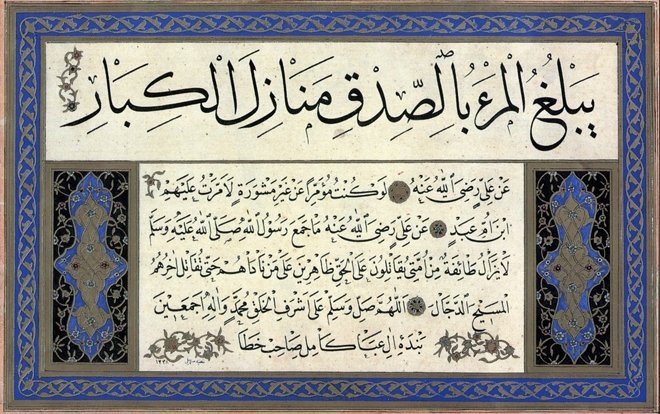 يَبْلُغُ الْمَرْءُ بِالصِّدْقِ مَنَازِلَ الْكِبَارِ
عَنْ عَلِيٍّ رَضِيَ اللهُ عَنْهُ لَوْ كُنْتُ مُؤَمِّرًا عَنْ غَيْرِ مَشْورَةٍ لَاَمَّرْتُ عَلَيْهِمْ
ابْنَ اُمِّ عَبْدٍ عَنْ عَلِيٍّ رَضِيَ اللهُ عَنْهُ مَا جَمَعَ رَسُولُ اللهِ صَلَّى اللهُ عَلَيْهِ وَسَلَّمَ
لَا يَزَالُ طَائِفَةٌ مِنْ اُمَّتِي يُقَاتِلُونَ عَلَى الْحَقِّ ظَاهِرِينَ عَلَى مَنْ نَاأَهُمْ حَتَّى يُقَاتِلَ اٰخِرُهُمْ
الْمَسِيحَ الدَّجَّالَ اَللّٰهُمَّ صَلِّ وَسَلِّمْ عَلَى اَشْرَفِ الْخَلْقِ مُحَمَّدٍ وَاٰلِهِ اَجْمَعِينَ
بَنْدَهٔ اٰلِ عَبَا كَامِلِ صَاحِبْ خَطَا